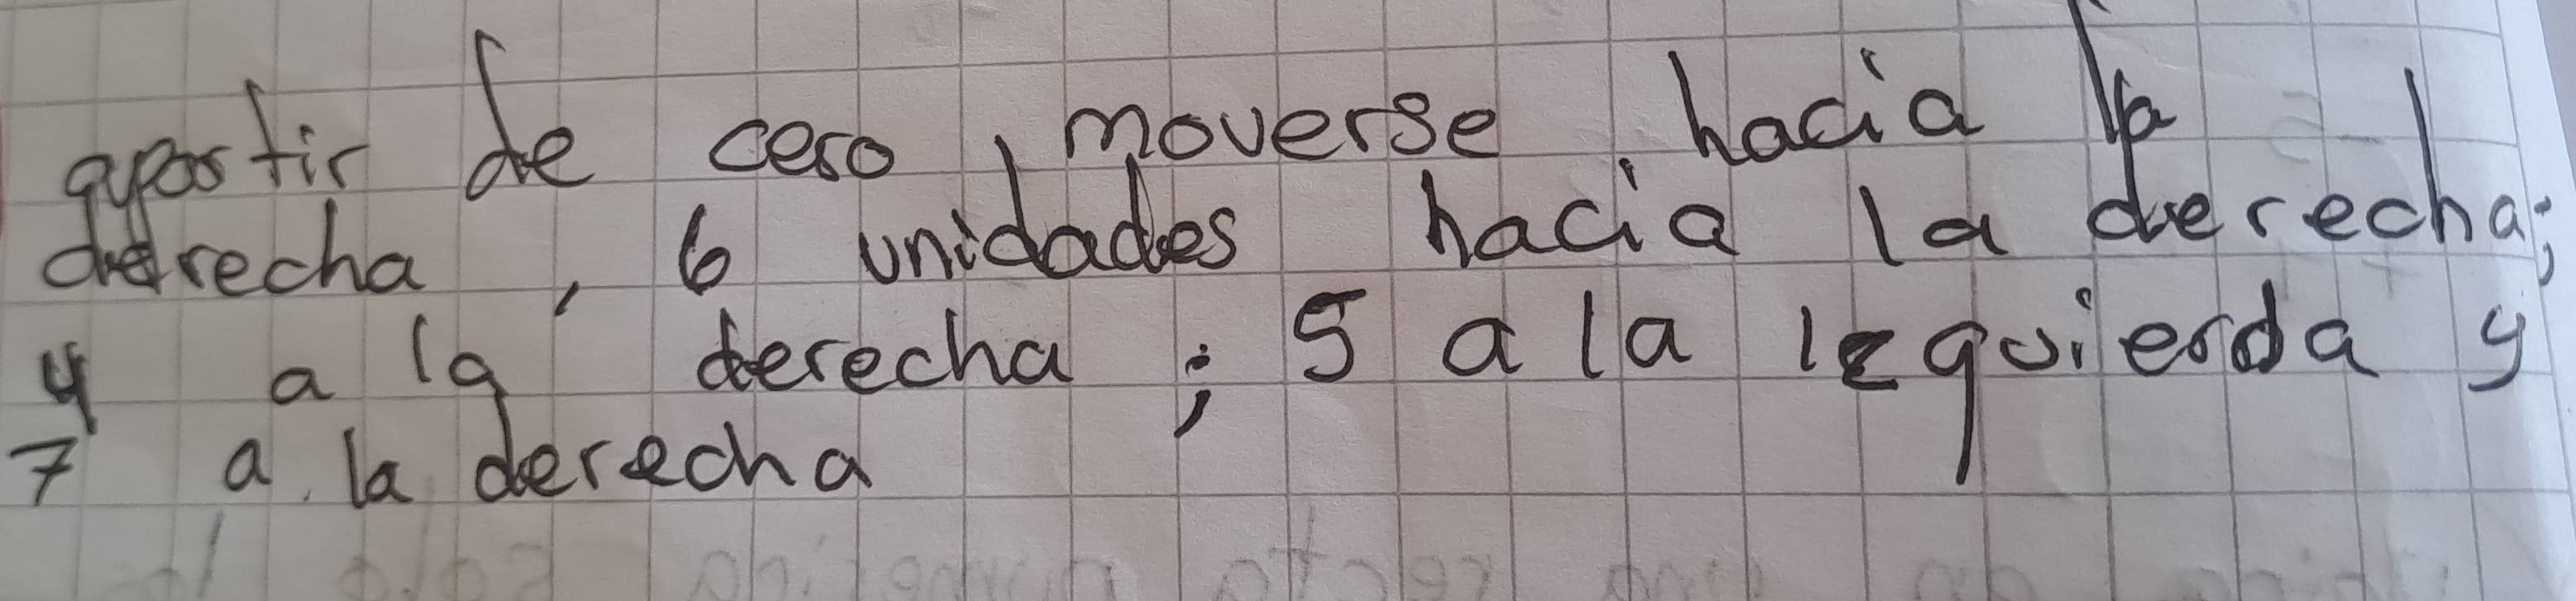 apartir de cero, moverse hacia la
derecha, 6 unidades hacia la derecha;
4 a la derecha ; 5 a la Izquierda y
7 a la derecha